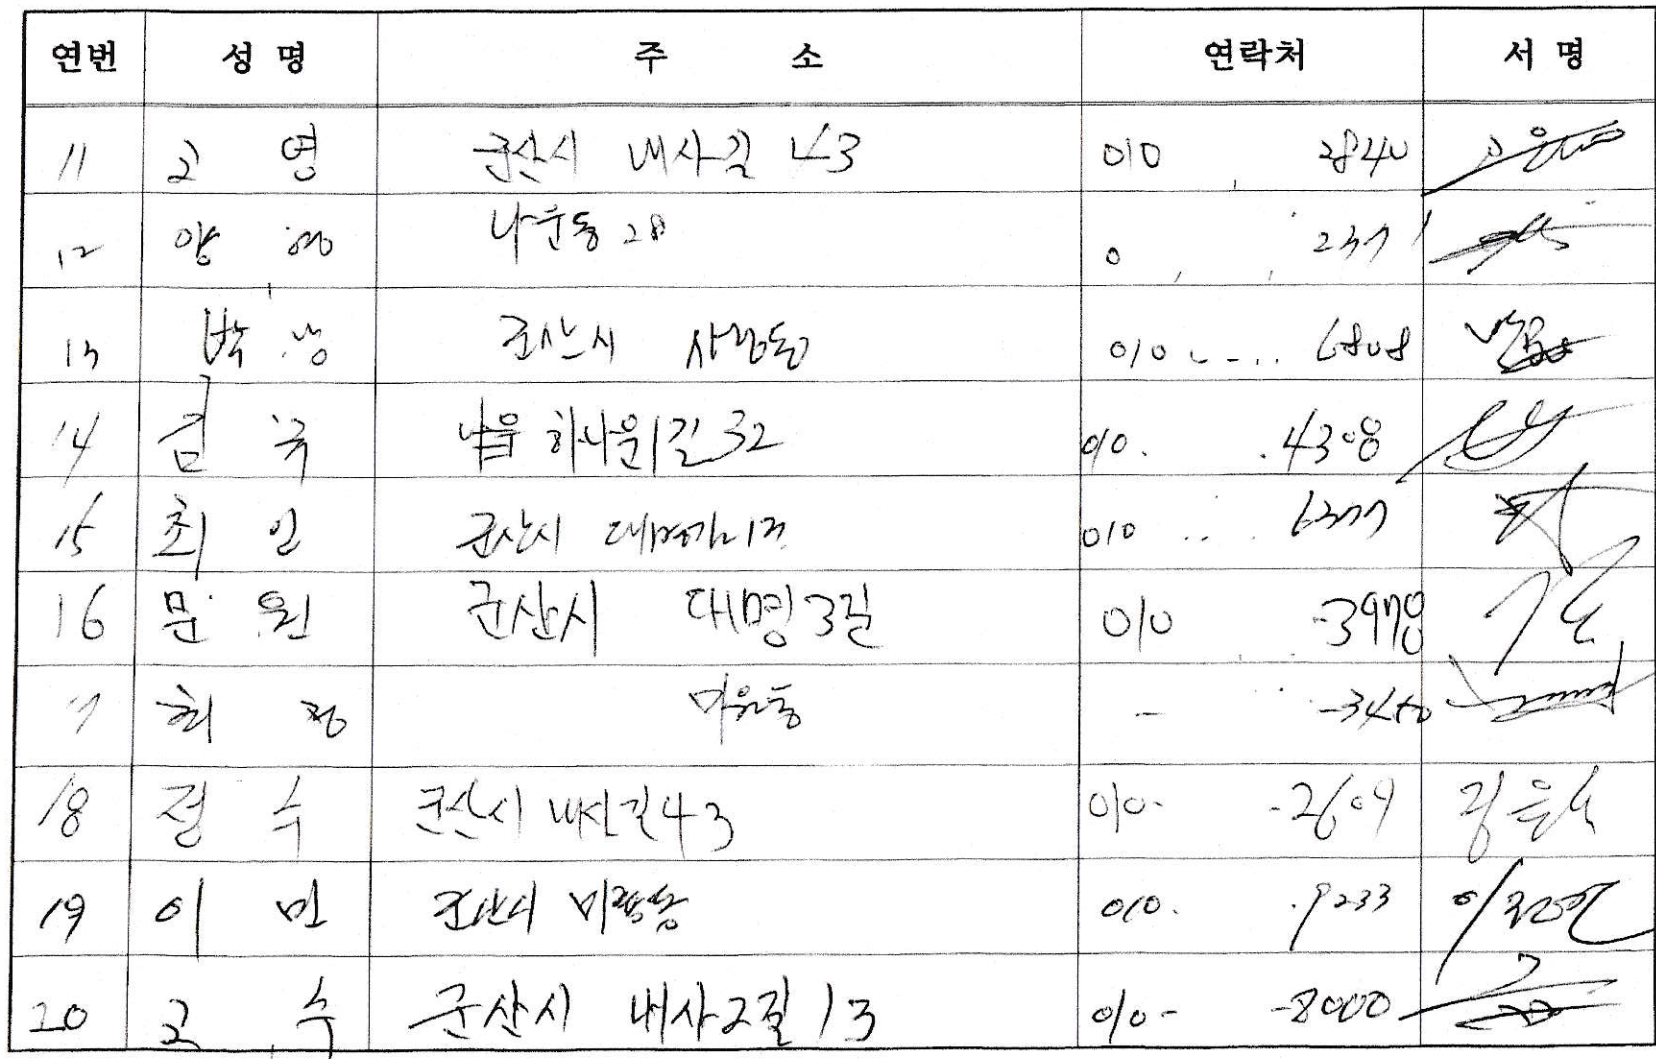 연번 성명 주 소 연락처 서명
11 고 영 군산시 내사길 43 010 2840
12 양 영 나운동 28 0 2377
13 박 상 군산시 사정동 010 6808
14 김 국 나운 하나운1길 32 010. 4308
15 최 인 군산시 010 6377
16 문 원 군산시 대명3길 010 -3978
17 최 정 미원동 - -3450
18 정 수 군산시 내사길 43 010- -2609
19 이 민 군산시 미장동 010. 9233
20 고 수 군산시 내사2길 13 010- -8000